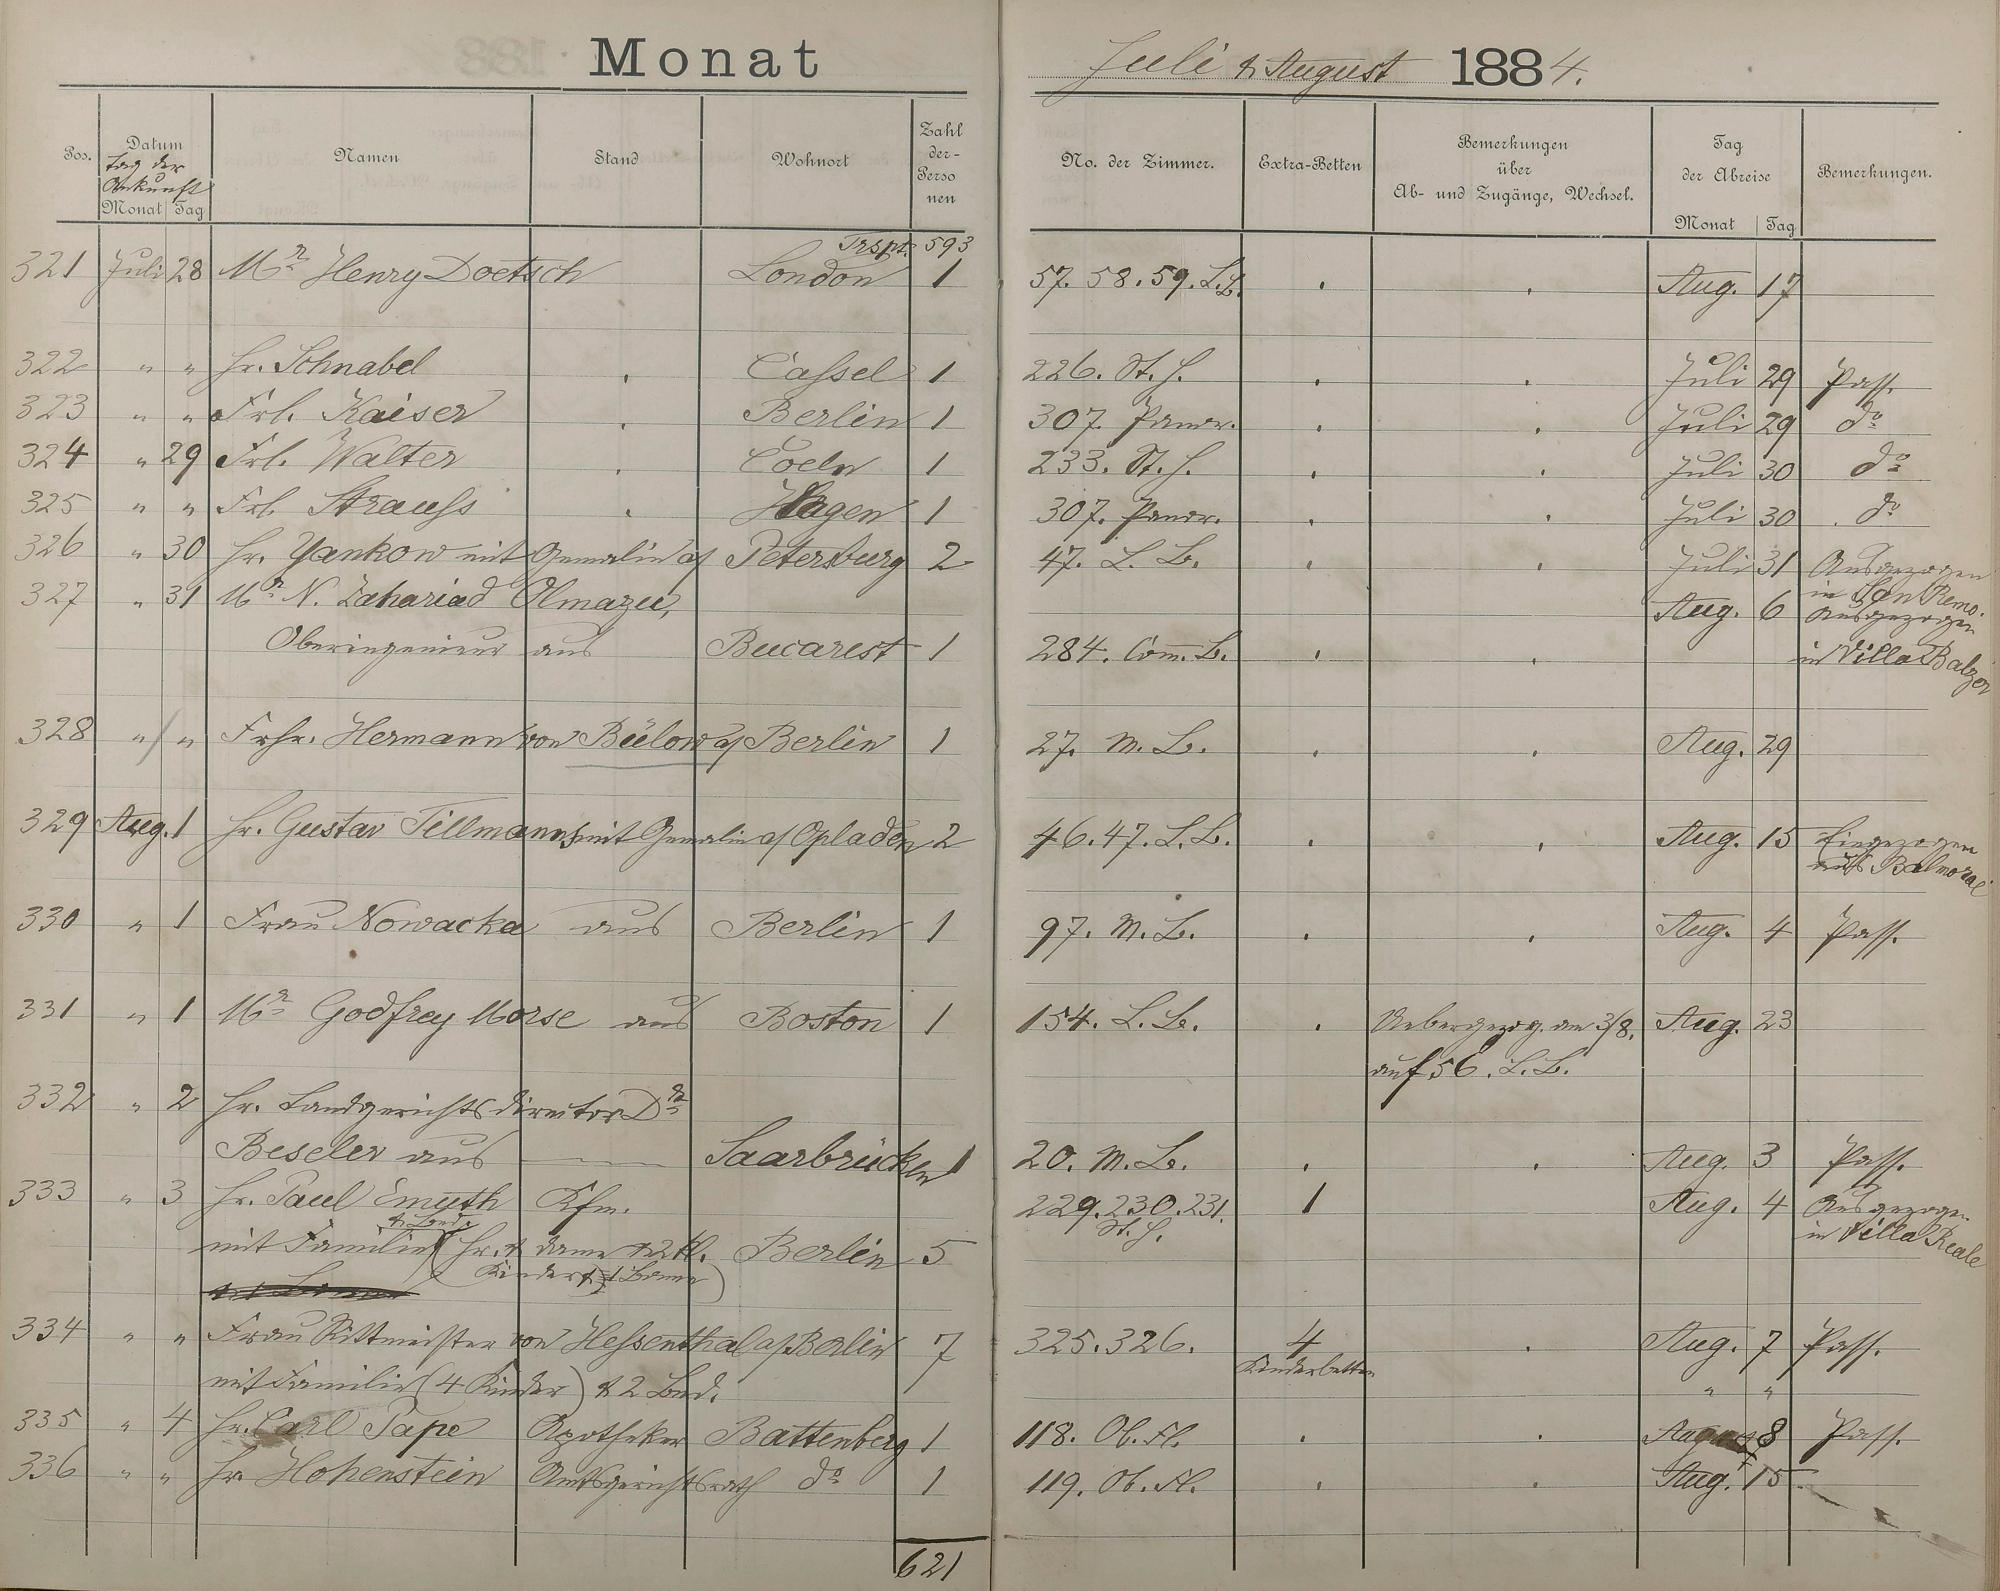 Monat Juli & August 1884.
Pos. Datum Namen Stand Wohnort Zahl der- Perso nen No. der Zimmer. Extra-Betten Bemerkungen über Ab- und Zugänge, Wechsel. Tag der Abreise Bemerkungen.
Tag der Ankunft
Monat Tag Monat Tag
Trspt. 593
321 Juli 28 Mr Henry Doetsch London 1 57. 58. 59. L.B. Aug. 17
322 " " Hr. Schnabel Cassel 1 226. St. H. Juli 29 Pass.
323 " " Frl. Kaiser Berlin 1 307. Panor. Juli 29 do
324 " 29 Frl. Walter Coeln 1 233. St. H. Juli 30 do
325 " " Frl. Strauss Hagen 1 307. Panor. Juli 30 do
326 " 30 Hr. Yankow mit Gemalin a/ Petersburg 2 47. L. B. Juli 31 Ausgezogen
in San Remo.
327 " 31 Mr N. Zahariad Olmazu, Aug. 6 Ausgezogen
Oberingenieur aus Bucarest 1 284. Com. B. in Villa Balzer
328 " " Frhr. Hermann von Bülow a/ Berlin 1 27. M. B. Aug. 29
329 Aug. 1 Hr. Gustav Tillmanns mit Gemalin a/ Opladen 2 46. 47. L. B. Aug. 15 Eingezogen
aus Balmoral
330 " 1 Frau Nowacka aus Berlin 1 97. M. B. Aug. 4 Pass.
331 " 1 Mr Godfrey Morse aus Boston 1 154. L. B. Uebergezog. am 3/8. Aug. 23
auf 56. L. B.
332 " 2 Hr. Landgerichtsdirector Dr
Beseler aus Saarbrücken 1 20. M. B. Aug. 3 Pass.
333 " 3 Hr. Paul Emuth Kfm. 229. 230. 231. 1 Aug. 4 Ausgezogen
& Bed. St. H. in Villa Reale
mit Familie (Hr. & Dame & 2 kl. Berlin 5
Kinder & 1 Bonne)
334 " " Frau Rittmeister von Hessenthal a/ Berlin 7 325. 326. 4 Aug. 7 Pass.
Kinderbetten
mit Familie (4 Kinder) & 2 Bed. " "
335 " 4 Hr. Carl Pape Apotheker Battenberg 1 118. Ob. Fl. August 8 Pass.
336 " " Hr. Hohenstein Amtsgerichtsrath do 1 119. Ob. Fl. Aug. 15
621